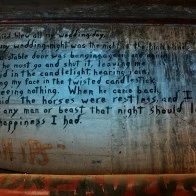 wedding day.
my wedding night was the night of the
stable door was banging and
he must go and shut it, leaving me
in the candlelight hearing rain,
my face in the twisted candlestick,
seeing nothing. When he came back
said the horses were restless and
any man or beast that night should
happiness I had.